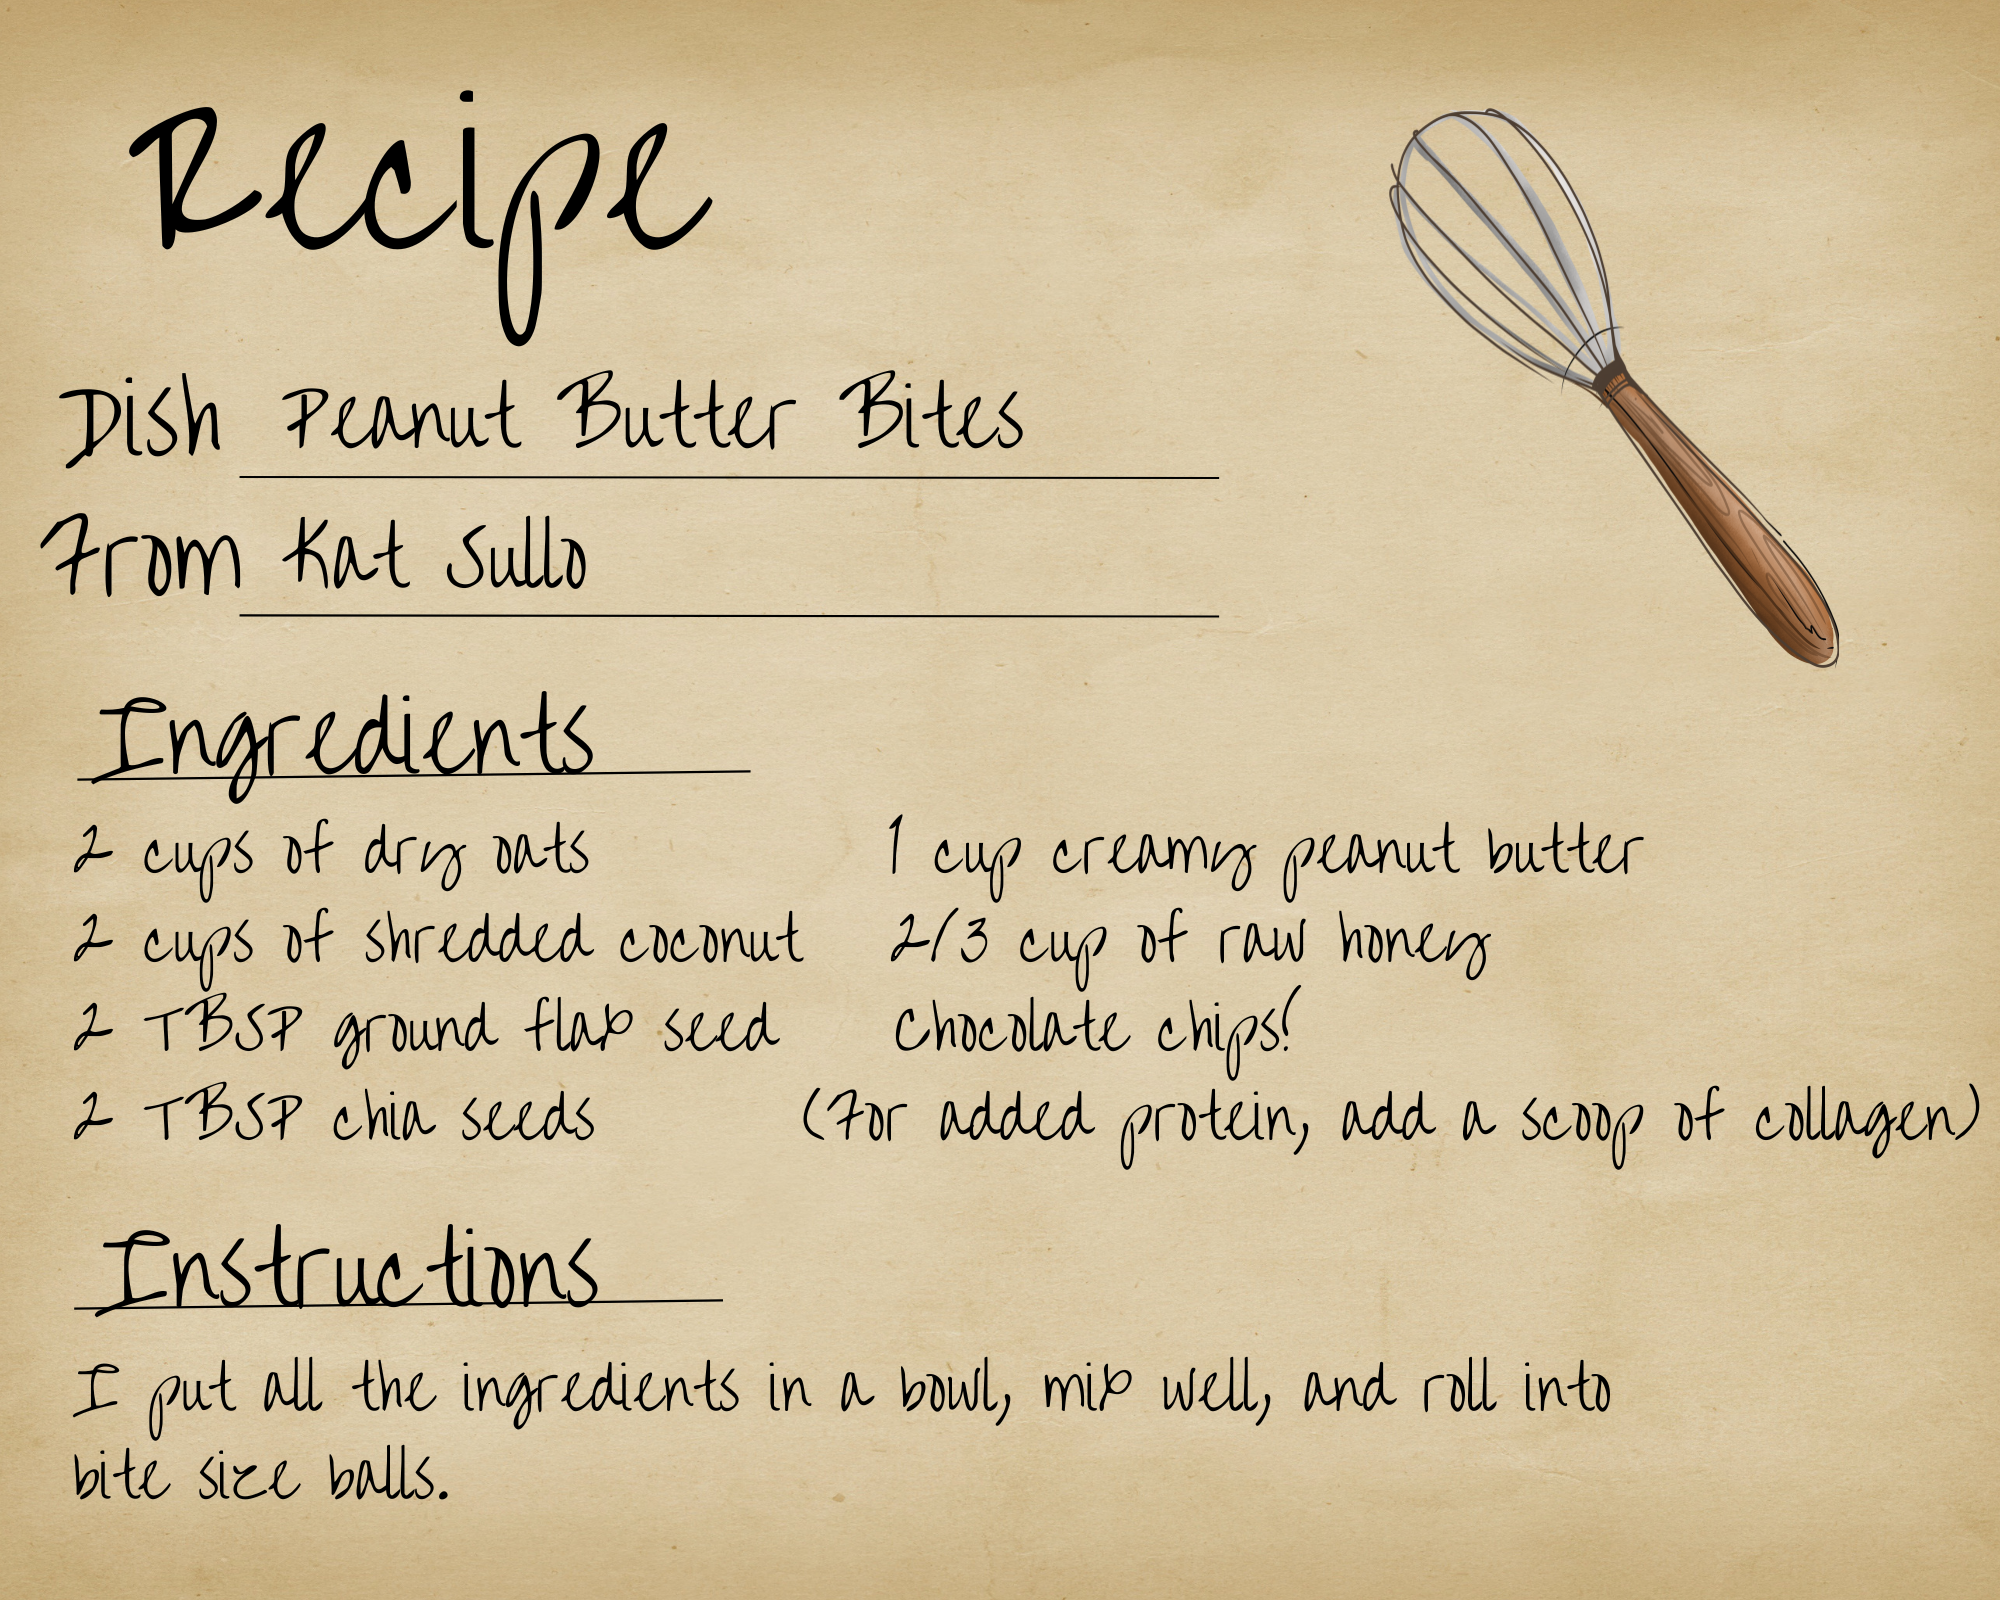 Recipe
Dish Peanut Butter Bites
From Kat Sullo
Ingredients
2 cups of dry oats
2 cups of shredded coconut
2 TBSP ground flax seed
2 TBSP chia seeds
1 cup creamy peanut butter
2/3 cup of raw honey
Chocolate chips!
(For added protein, add a scoop of collagen)
Instructions
I put all the ingredients in a bowl, mix well, and roll into
bite size balls.